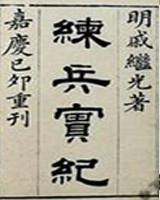 明戚繼光著
練兵實紀
嘉慶己卯重刊